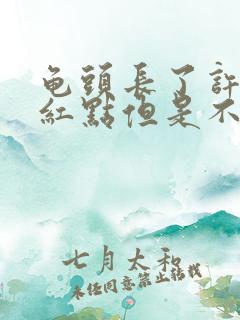 龟頭長了許
紅點但是不
七月太和
未经同意禁止转载